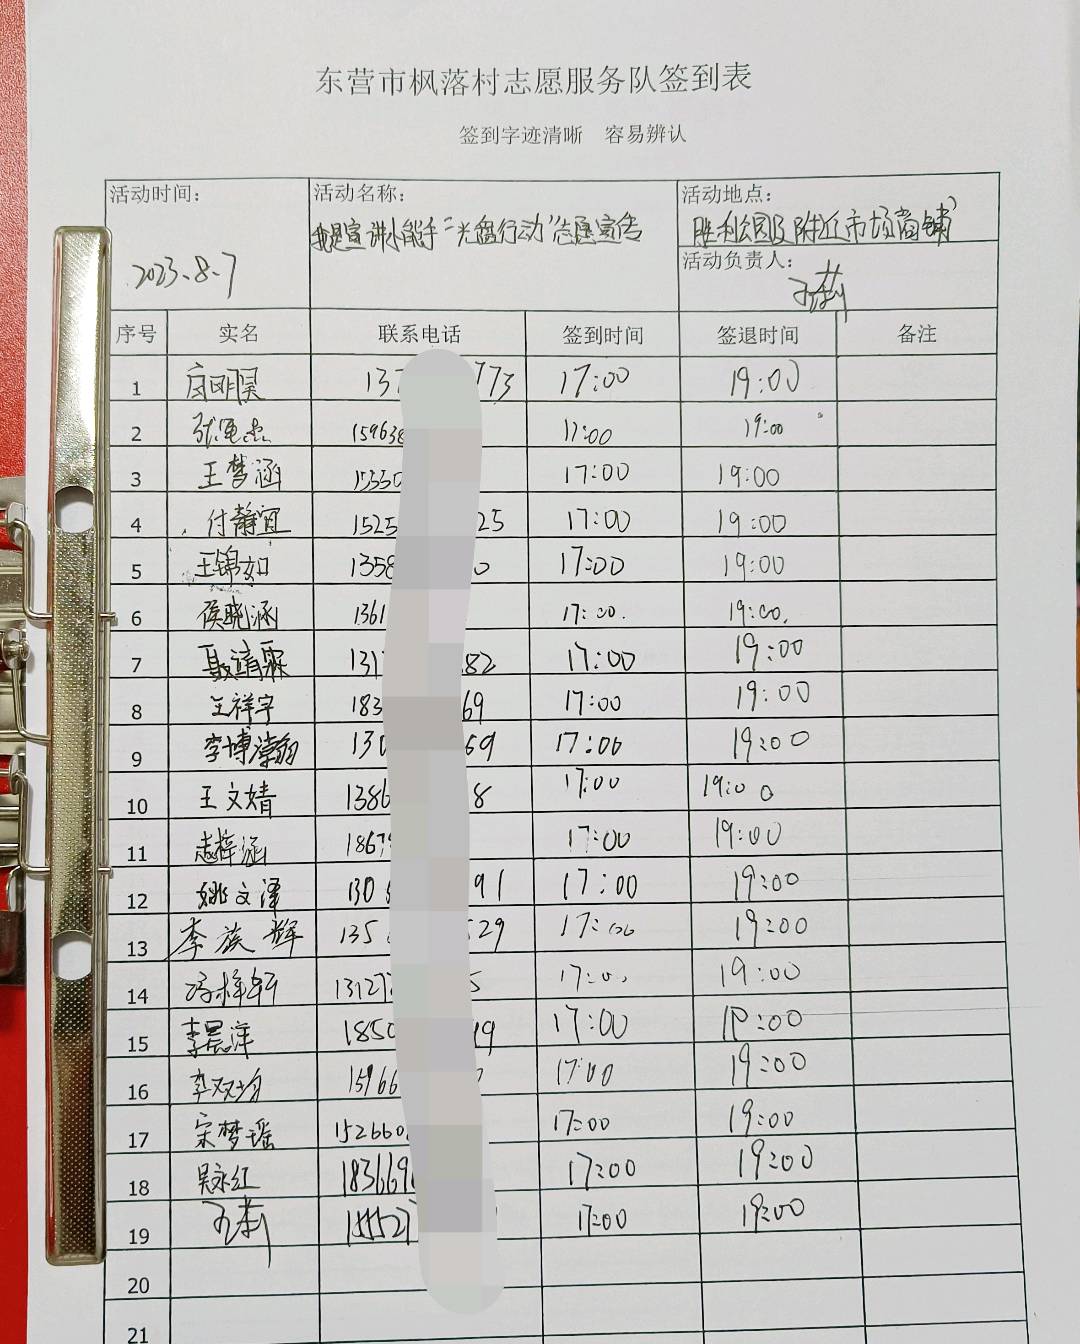 东营市枫落村志愿服务队签到表
签到字迹清晰 容易辨认
活动时间: 活动名称: 活动地点:
2023.8.7 我是宣讲小能手“光盘行动”志愿宣告 胜利公园及附近市场商铺
活动负责人:
序号 实名 联系电话 签到时间 签退时间 备注
1 137 773 17:00 19:00
2 159638 17:00 19:00
3 王梦涵 15330 17:00 19:00
4 付静宜 1525 25 17:00 19:00
5 王锦如 1358 0 17:00 19:00
6 侯晓涵 1361 17:00. 19:00.
7 聂靖霖 131 82 17:00 19:00
8 王祥宇 183 69 17:00 19:00
9 李博瀚 130 69 17:00 19:00
10 王文婧 1386 8 17:00 19:00
11 赵梓涵 1867 17:00 19:00
12 姚文泽 130 91 17:00 19:00
13 李族辉 135 529 17:00 19:00
14 13127 5 17:00 19:00
15 李晨洋 1850 19 17:00 19:00
16 李双均 15966 17:00 19:00
17 宋梦瑶 152660 17:00 19:00
18 吴永红 183669 17:00 19:00
19 17:00 19:00
20
21